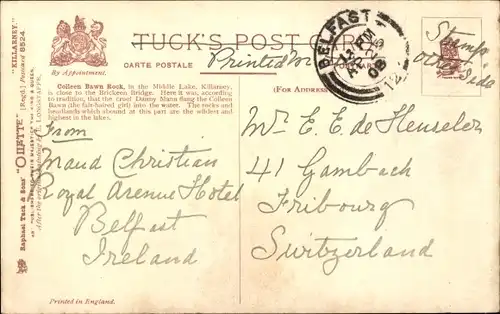 "KILLARNEY."
Postcard 8524.
Raphael Tuck & Sons' "OILETTE" [Regd.]
By Appointment.
TUCK'S POST C
CARTE POSTALE
Printed
(FOR ADDRESS
BELFAST
12
PM
08
Stamp
other side
Colleen Bawn Rock, in the Middle Lake, Killarney,
is close to the Brickeen Bridge. Here it was, according
to tradition, that the cruel Danny Mann flung the Colleen
Bawn (the fair-haired girl) into the water. The rocks and
headlands which abound at this part are the wildest and
highest in the lakes.
From
Maud Christian
Royal Avenue Hotel
Belfast
Ireland
Mr. E. E. de Heuseler
41 Gambach
Fribourg
Switzerland
Printed in England.